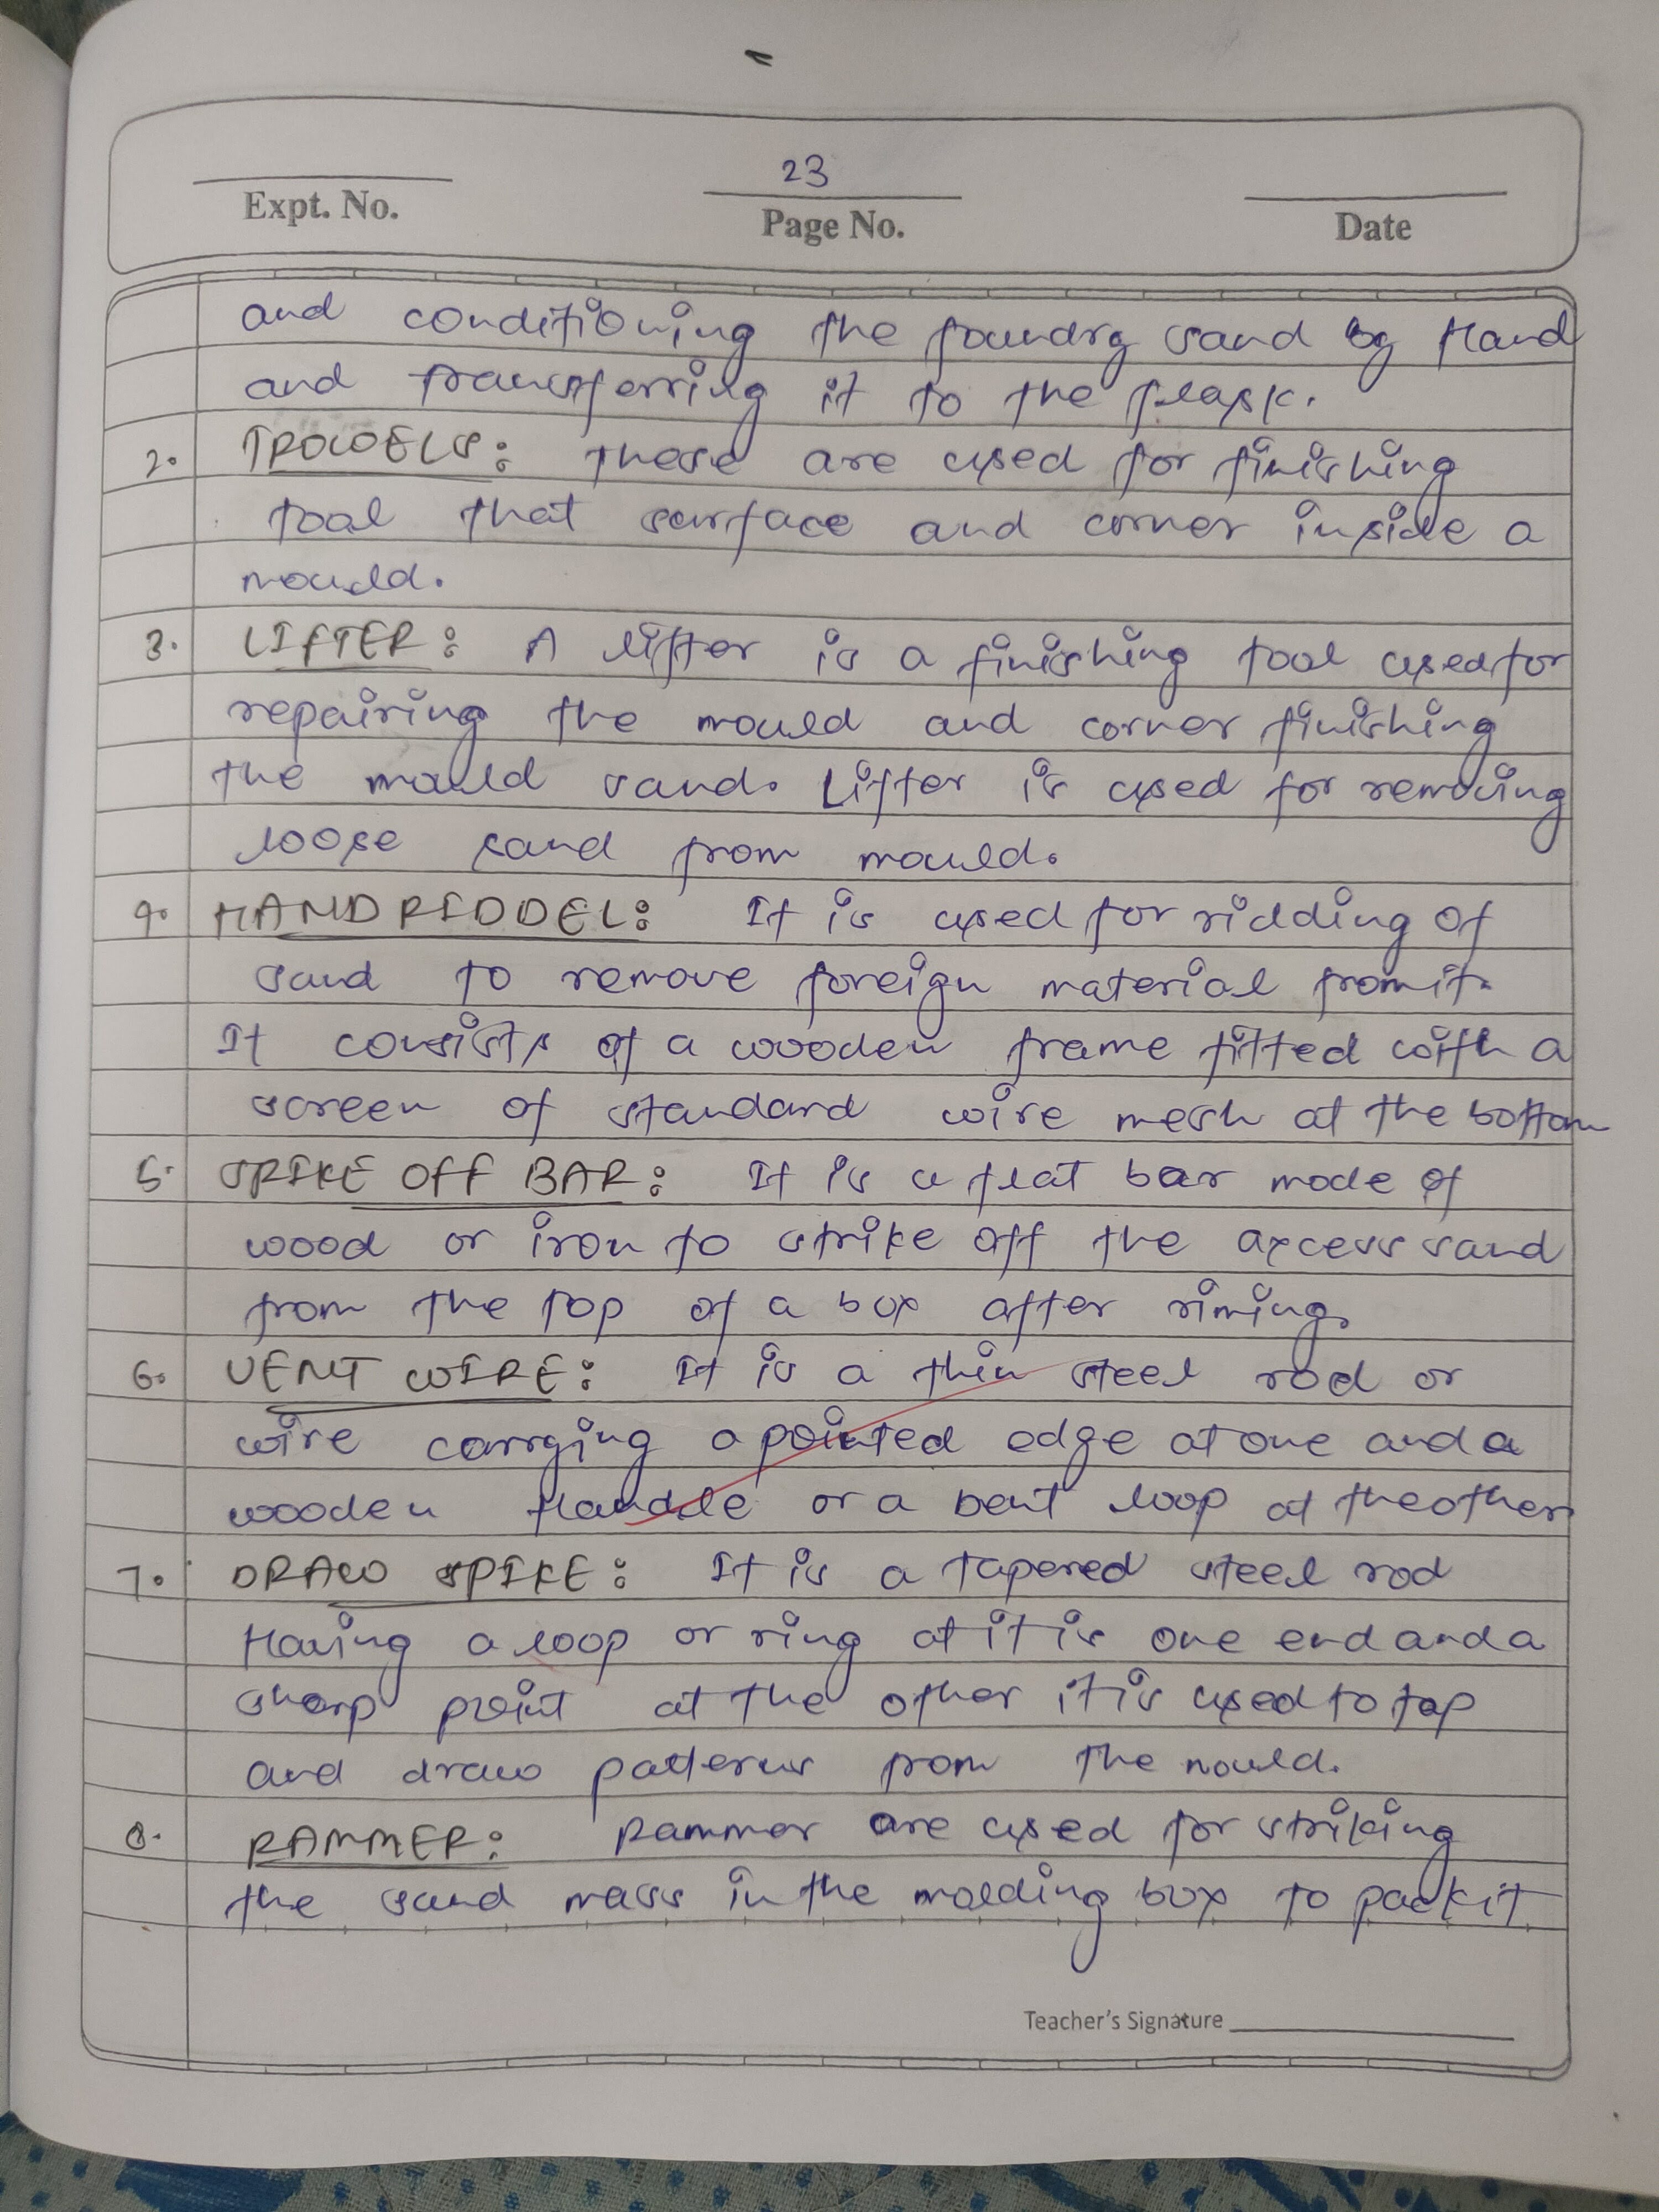 23
Expt. No.
Page No.
Date
and conditioning the foundry sand by Hand
and transferring it to the flask.
2. TROWELS: these are used for finishing
tool that surface and corner inside a
mould.
3. LIFTER: A lifter is a finishing tool used for
repairing the mould and corner finishing
the mould sand. Lifter is used for removing
loose sand from mould.
4. HAND RIDDEL: It is used for ridding of
sand to remove foreign material from it.
It consists of a wooden frame fitted with a
screen of standard wire mesh at the bottom
5. SRIKE OFF BAR: It is a flat bar mode of
wood or iron to strike off the axcess sand
from the top of a box after riming.
6. VENT WIRE: It is a thin steel rod or
wire carrging a pointed edge at one and a
wooden Handle or a bent loop at the other
7. DRAW SPIKE: It is a tapered steel rod
Having a loop or ring at it is one end and a
sharp point at the other it is used to top
and draw patterns from the nould.
8. RAMMER: Rammer are used for striking
the sand mass in the molding box to pack it
Teacher's Signature